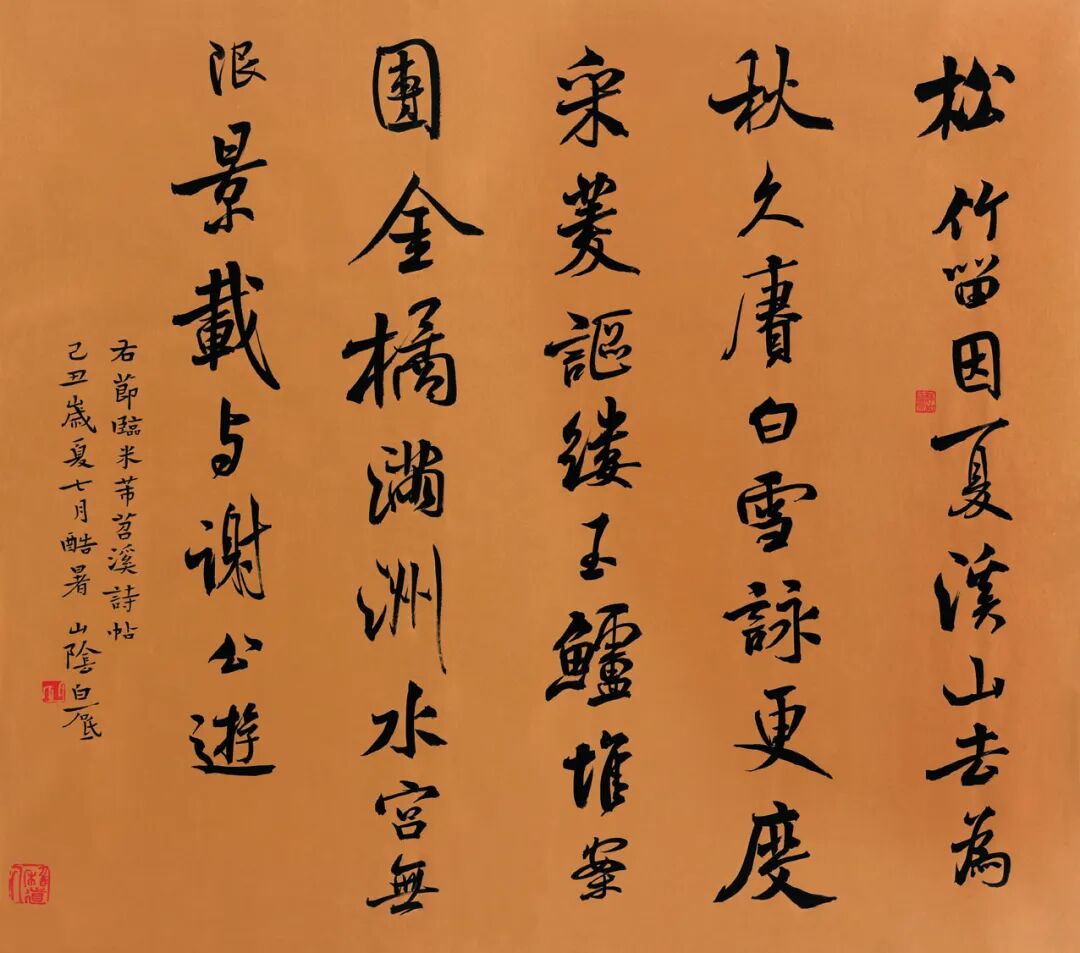 松竹留因夏溪山去為
秋久賡白雪詠更度
采菱謳縷玉鱸堆案
團金橘滿洲水宮無
限景載与謝公遊
右節臨米芾苕溪詩帖
己丑歲夏七月酷暑 山陰白砥